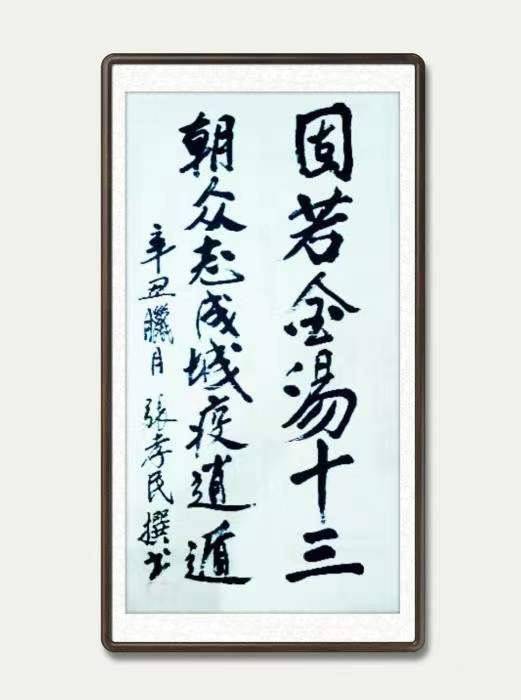 固若金湯十三
朝众志成城疫遁遁
辛丑臘月 張孝民撰书